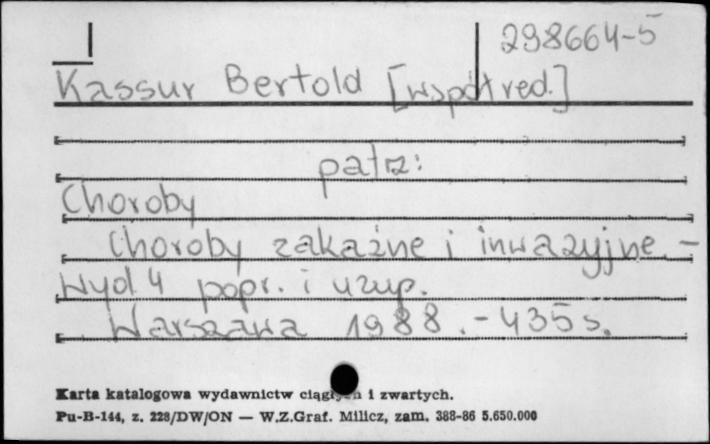 298664-5
Kassur Bertold [współred.]
patrz:
Choroby
Choroby zakaźne i inwazyjne. -
Wyd. 4 popr. i uzup.
Warszawa 1988. - 435 s.
Karta katalogowa wydawnictw ciągłych i zwartych.
Pu-B-144, z. 228/DW/ON — W.Z.Graf. Milicz, zam. 388-86 5.650.000